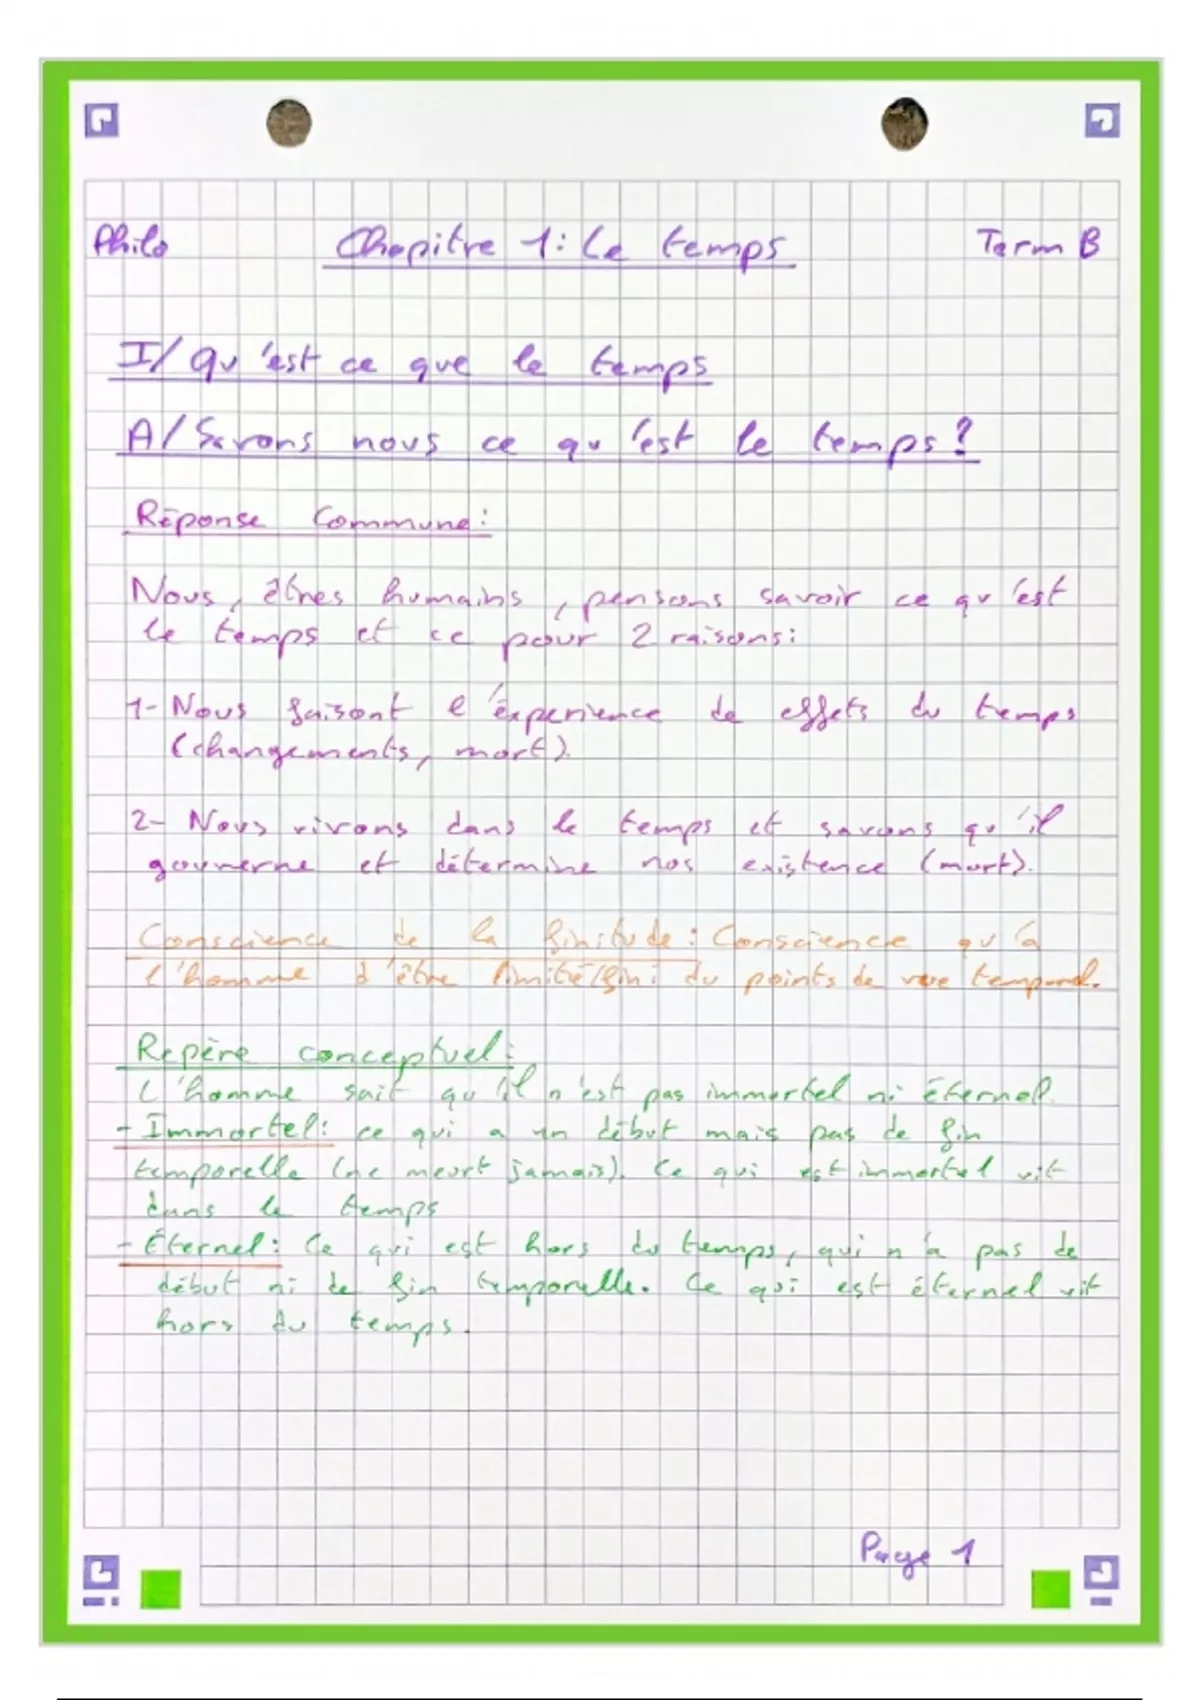 Philo Chapitre 1: Le temps Term B
I/ Qu'est ce que le temps
A/ Savons nous ce qu'est le temps?
Réponse Commune:
Nous, êtres humains, pensons savoir ce qu'est
le temps et ce pour 2 raisons:
1- Nous faisont l'éxperience de effets du temps
(changements, mort).
2- Nous vivons dans le temps et savons qu'il
gouverne et détermine nos existence (mort).
Conscience de la finitude: Conscience qu'a
l'homme d'être limité/fini du points de vue temporel.
Repère conceptuel:
L'homme sait qu'il n'est pas immortel ni éternel.
- Immortel: ce qui a un début mais pas de fin
temporelle (ne meurt jamais). Ce qui est immortel vit
dans le temps
- Éternel: Ce qui est hors du temps, qui n'a pas de
début ni de fin temporelle. Ce qui est éternel vit
hors du temps.
Page 1